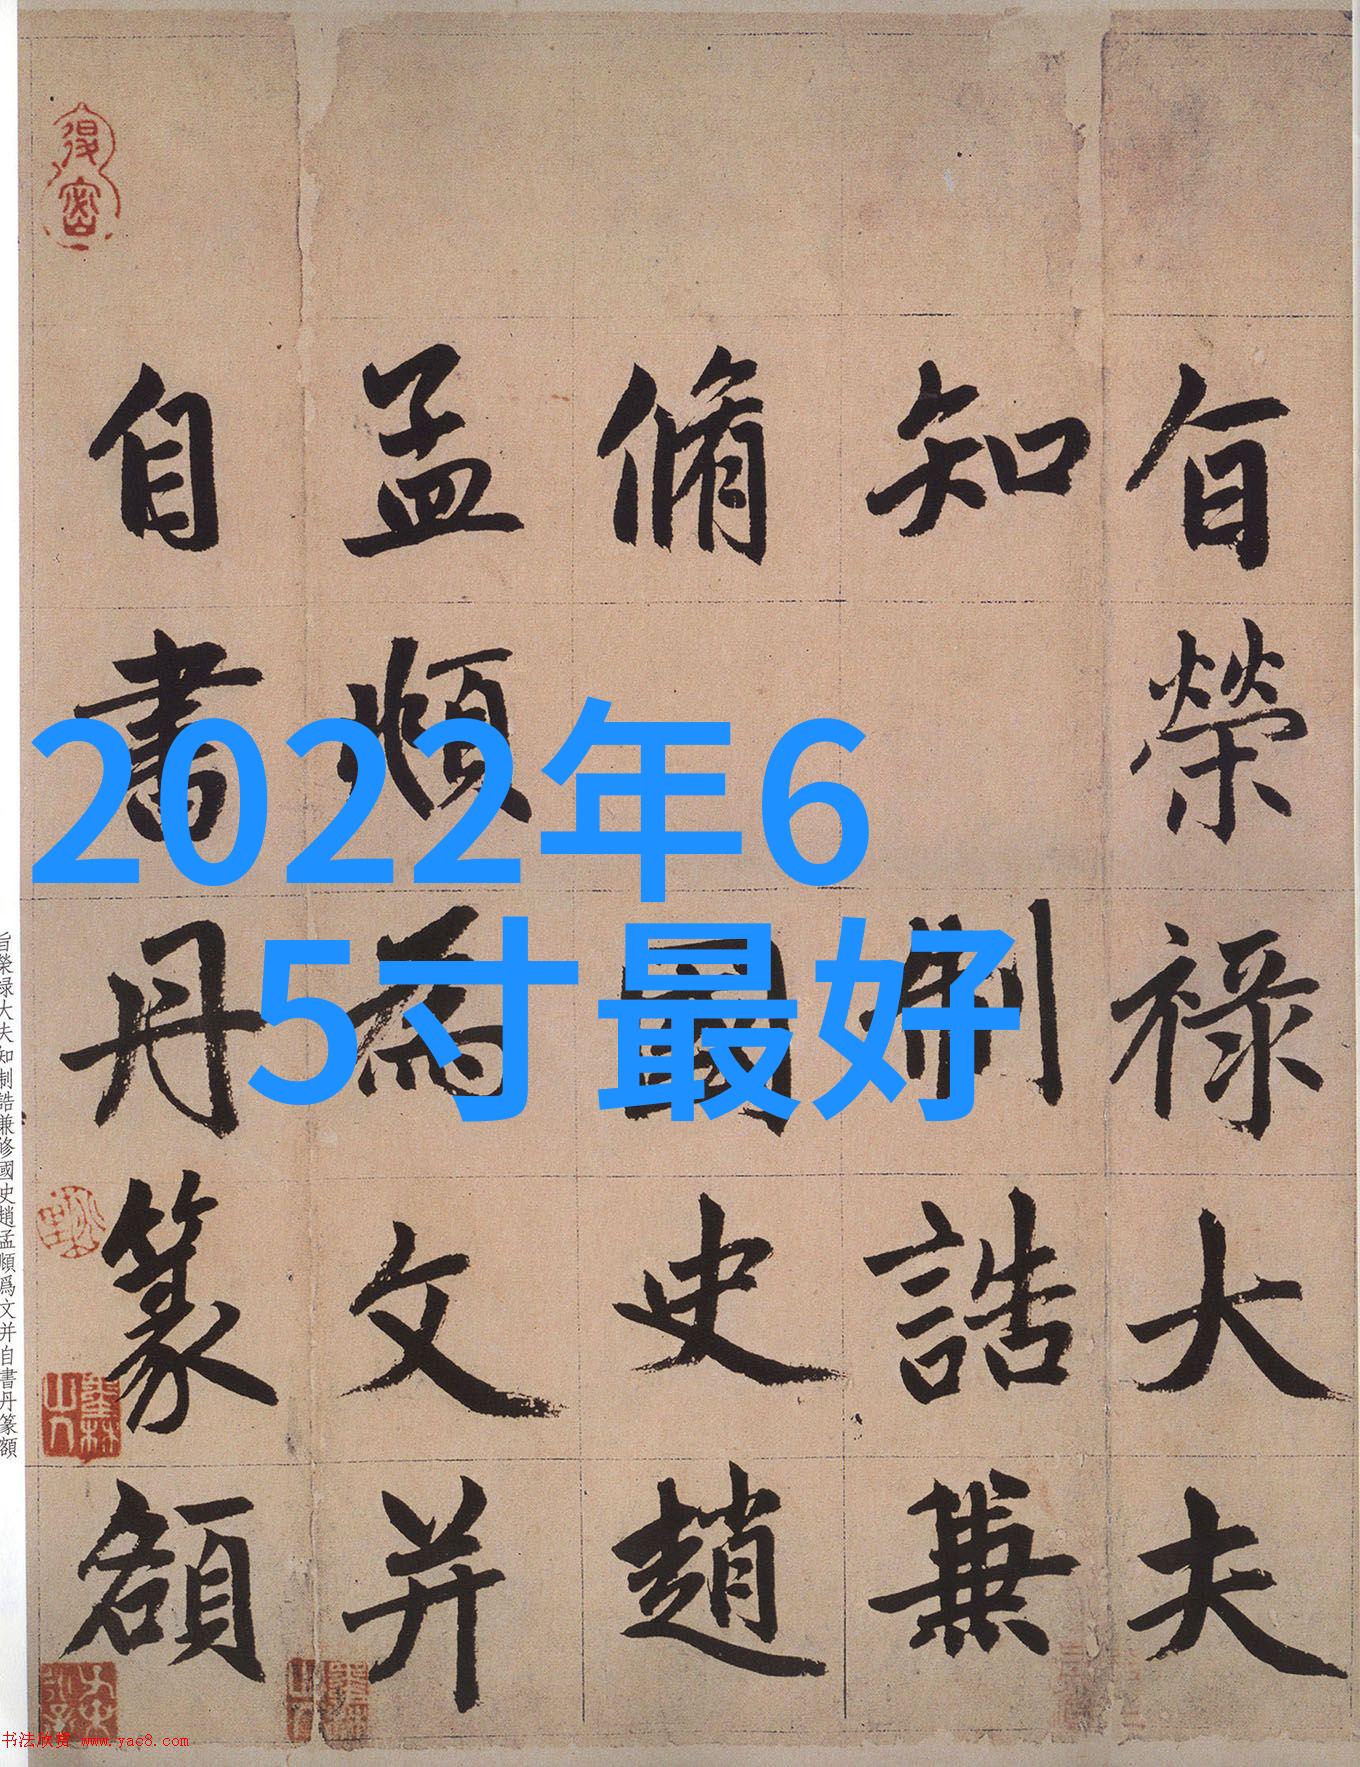 旨榮祿大夫
知制誥兼
脩國史趙
孟頫為文并
自書丹篆額
2022年6
5寸最好
旨榮禄大夫知制誥兼修國史趙孟頫爲文并自書丹篆額
书法欣赏 www.yac8.com